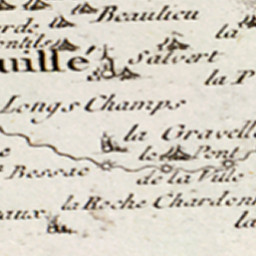 Beaulieu
la
Salvert
uillé
la P
Longs Champs
la Gravelle
le Pont
Bessac
de la Ville
la Roche Chardon
aux
la